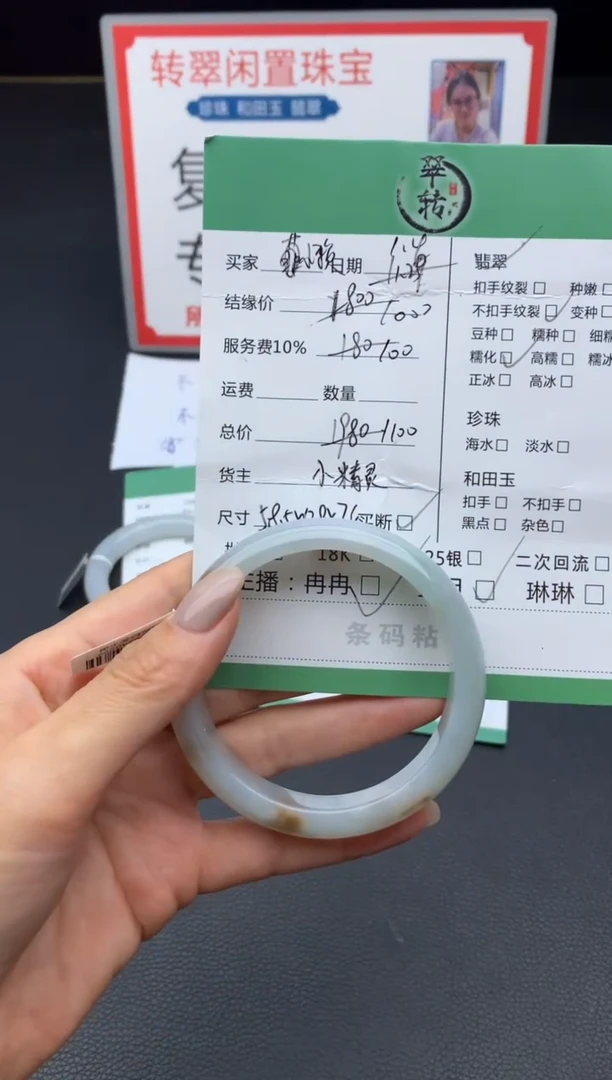 转翠闲置珠宝
珍珠 和田玉 翡翠
复
专
翠
转
买家 日期
结缘价 1800 1000
服务费10% 180 100
运费 数量
总价 1980 1100
货主 小精灵
尺寸 买断
18K 25银 二次回流
主播：冉冉 琳琳
条码粘
翡翠
扣手纹裂 种嫩
不扣手纹裂 变种
豆种 糯种 细糯
糯化 高糯 糯冰
正冰 高冰
珍珠
海水 淡水
和田玉
扣手 不扣手
黑点 杂色